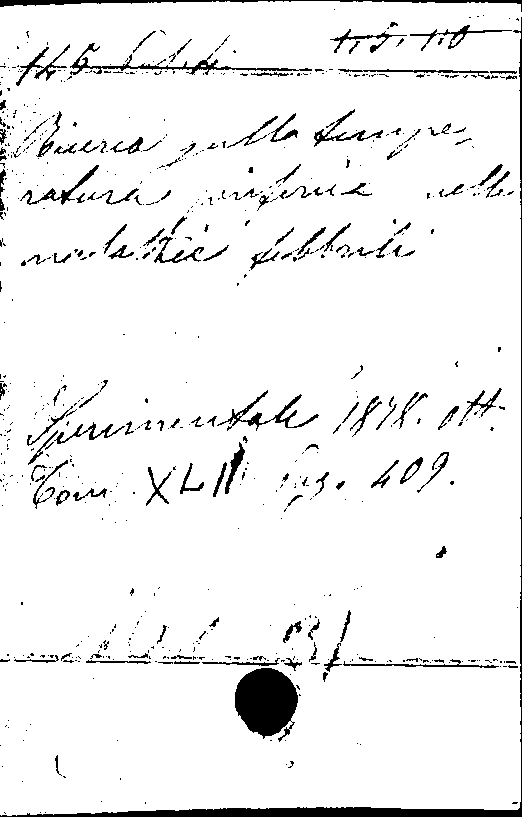 145 1. 5. 110
Ricerca sulla tempe-
ratura periferica nelle
malattie febbrili
Sperimentale 1878. ott.
Tom XLII Pag. 409.
31